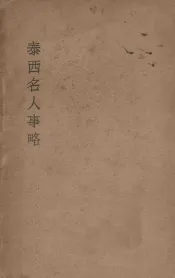 泰西名人事略